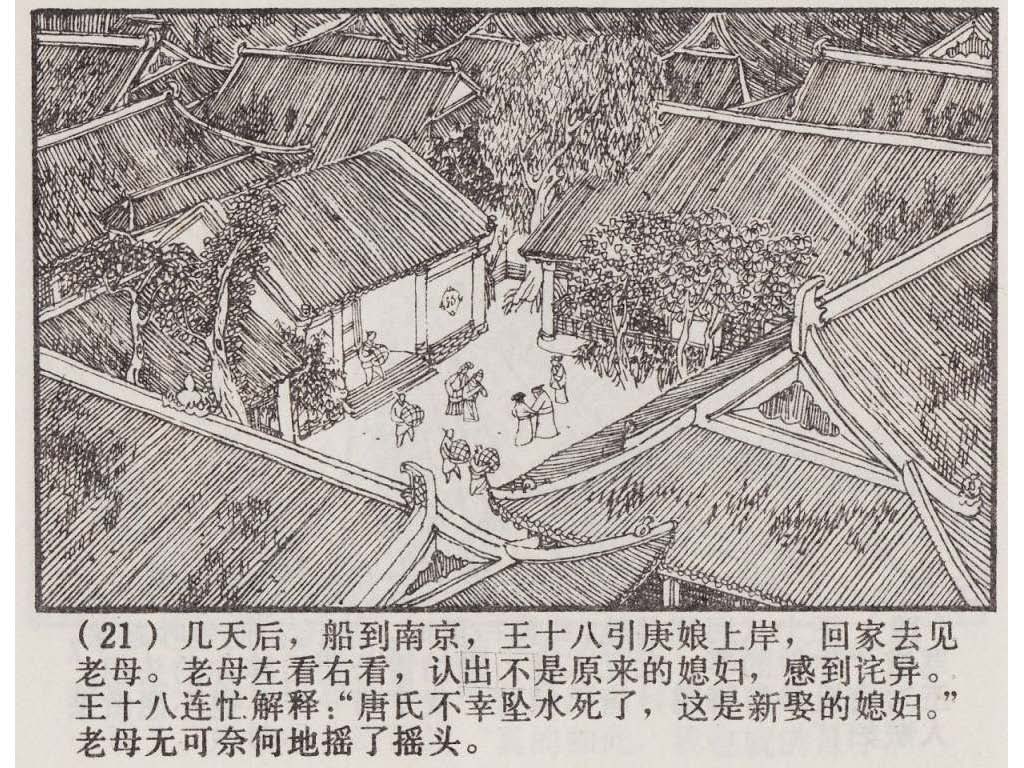 （21）几天后，船到南京，王十八引庚娘上岸，回家去见
老母。老母左看右看，认出不是原来的媳妇，感到诧异。
王十八连忙解释：“唐氏不幸坠水死了，这是新娶的媳妇。”
老母无可奈何地摇了摇头。